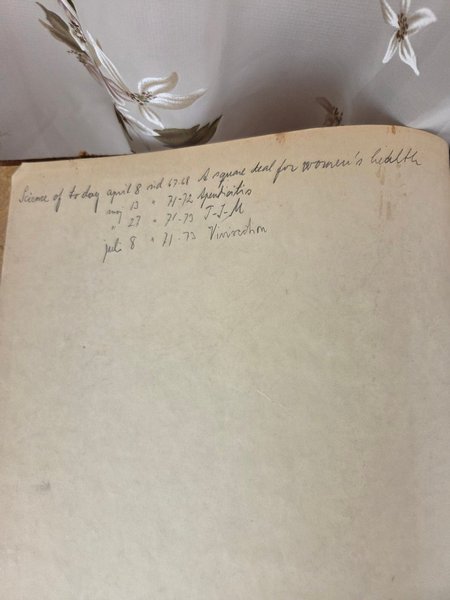 Science of to day april 8 sid 67-68 A square deal for women's health
maj 13 " 71-72 Apendisitis
" 27 " 71-73 T-J-M
juli 8 " 71-73 Vivisection